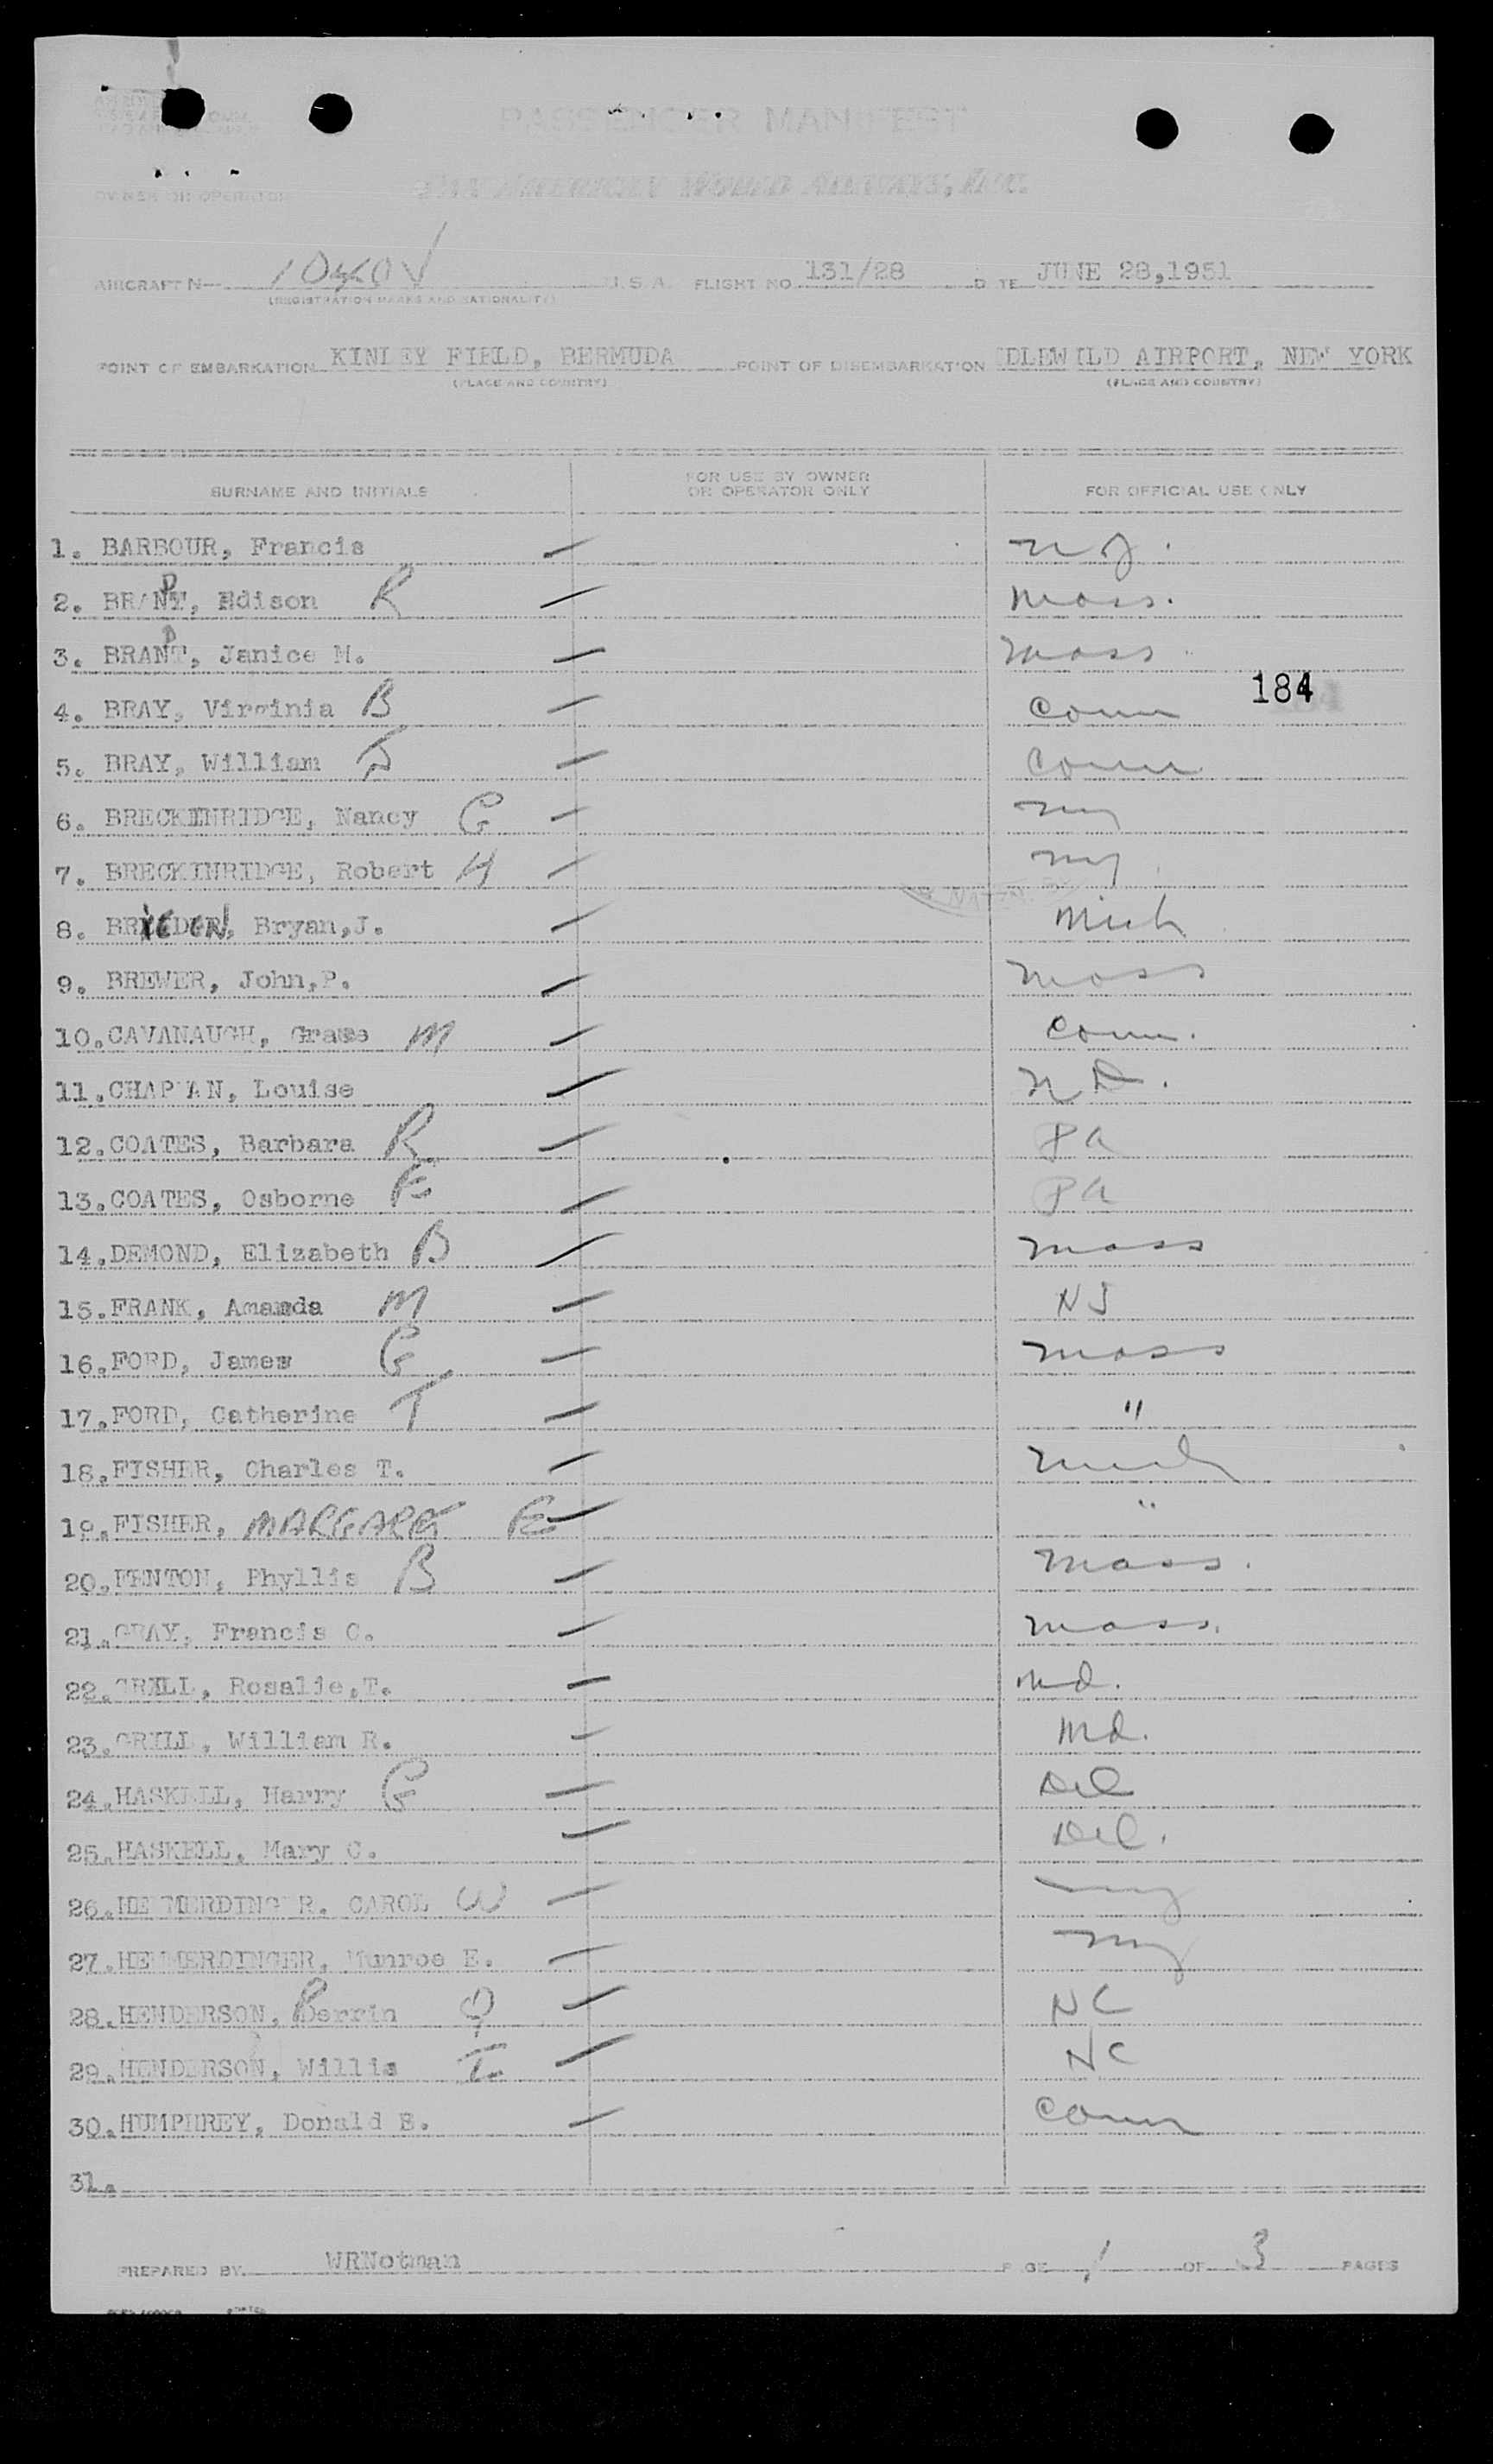 PASSENGER MANIFEST
OWNER OR OPERATOR PAN AMERICAN WORLD AIRWAYS, INC.
AIRCRAFT N— U.S.A. FLIGHT NO 131/28 DATE JUNE 28,1951
(REGISTRATION MARKS AND NATIONALITY)
POINT OF EMBARKATION KINLEY FIELD, BERMUDA POINT OF DISEMBARKATION IDLEWILD AIRPORT, NEW YORK
(PLACE AND COUNTRY) (PLACE AND COUNTRY)
SURNAME AND INITIALS FOR USE BY OWNER OR OPERATOR ONLY FOR OFFICIAL USE ONLY
1. BARBOUR, Francis — NJ.
2. BRANDT, Edison R — Mass.
3. BRANDT, Janice M. — Mass
184
4. BRAY, Virginia B — Conn
5. BRAY, William — Conn
6. BRECKINRIDGE, Nancy G — NY
7. BRECKINRIDGE, Robert H — NY
8. Bryan,J. — Mich
9. BREWER, John,P. — Mass
10. CAVANAUGH, Grace M — Conn.
11. CHAPMAN, Louise —
12. COATES, Barbara R — Pa
13. COATES, Osborne E — Pa
14. DEMOND, Elizabeth B — Mass
15. FRANK, Amanda M — NJ
16. FORD, James G — Mass
17. FORD, Catherine T — "
18. FISHER, Charles T. — Mich
19. FISHER, MARGARET E — "
20. FENTON, Phyllis B — Mass.
21. GRAY, Francis C. — Mass.
22. GRILL, Rosalie,T. — Md.
23. GRILL, William R. — Md.
24. HASKELL, Harry G — Del
25. HASKELL, Mary C. — Del.
26. HEMMERDINGER, CAROL W — NY
27. HEMMERDINGER, Munroe E. — NY
28. HENDERSON, Perrin — NC
29. HENDERSON, Willis I. — NC
30. HUMPHREY, Donald — Conn
31.
PREPARED BY WRNotman PAGE 1 OF 3 PAGES